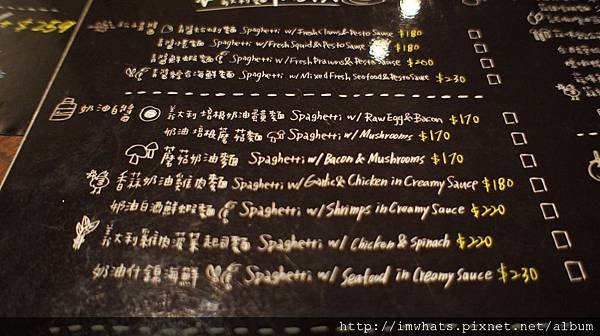 $259
青醬蛤蜊麵 Spaghetti w/ Fresh Clams & Pesto Sauce $180
Spaghetti w/ Fresh Squid & Pesto Sauce $180
青醬鮮蝦麵 Spaghetti w/ Fresh Prawns & Pesto Sauce $200
青醬綜合海鮮麵 Spaghetti w/ Mixed Fresh Seafood & Pesto Sauce $230
奶油白醬 義大利培根奶油蛋麵 Spaghetti w/ Raw Egg & Bacon $170
奶油培根蘑菇麵 Spaghetti w/ Mushrooms $170
蘑菇奶油麵 Spaghetti w/ Bacon & Mushrooms $170
香蒜奶油雞肉麵 Spaghetti w/ Garlic & Chicken in Creamy Sauce $180
奶油白酒鮮蝦麵 Spaghetti w/ Shrimps in Creamy Sauce $220
義大利雞肉菠菜起司麵 Spaghetti w/ Chicken & Spinach $220
奶油什錦海鮮 Spaghetti w/ Seafood in Creamy Sauce $230
http://imwhats.pixnet.net/album